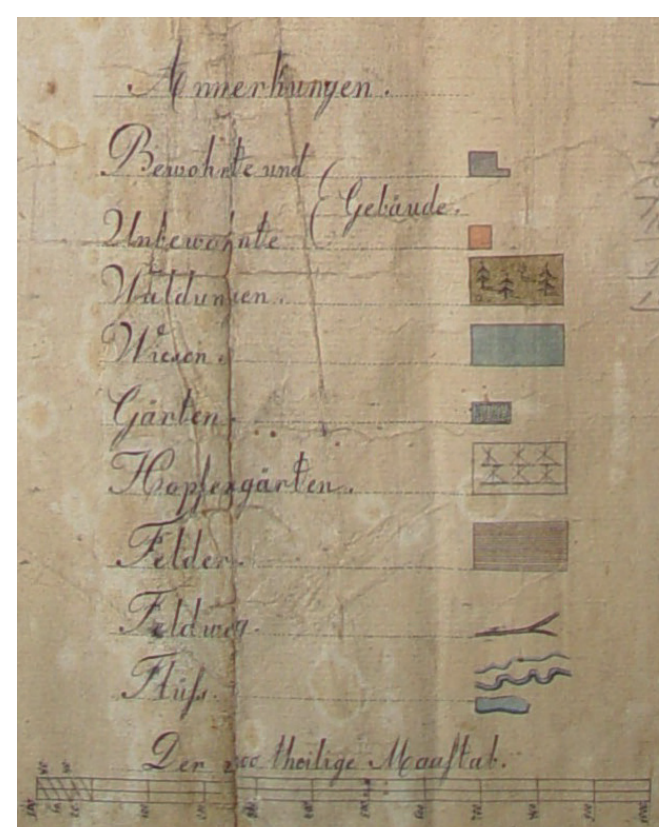 Anmerkungen.
Bewohnte und
Gebäude.
Unbewohnte
Waldungen.
Wiesen.
Gärten.
Hopfengärten.
Felder.
Feldweg.
Fluſs.
Der theilige Maaſtab.